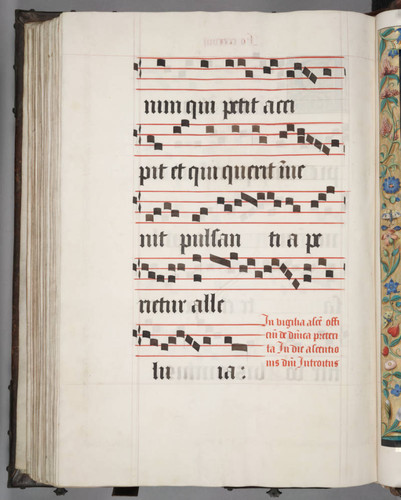 num qui petit acci
pit et qui querit inve
nit pulsan ti a pe
rietur alle
In vigilia asce offi
ciū de dnīca preceden
ta In die ascentio
nis dnī Introitus
lu ia: